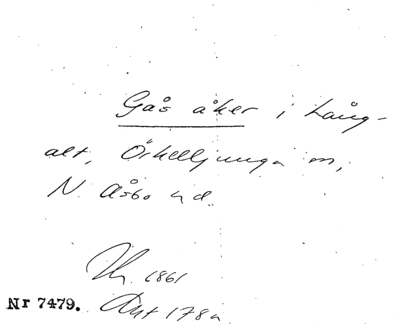 Gås åker i Lång-
alt, Örkelljunga sn,
N. Åsbo hd.
1861
Nr 7479. Akt 178a